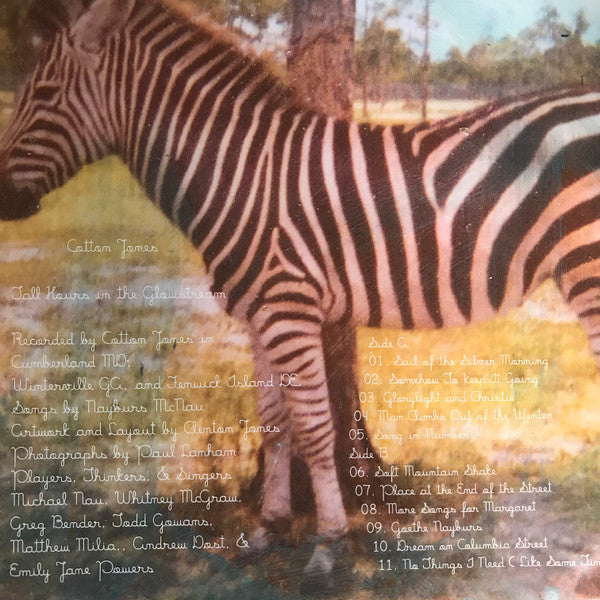 Cotton Jones
Tall Hours in the Glowstream
Recorded by Cotton Jones in
Cumberland MD,
Winterville GA, and Fenwick Island DE.
Songs by Nayburs McNau
Artwork and Layout by Clinton Jones
Photographs by Paul Lanham
Players, Thinkers, & Singers
Michael Nau, Whitney McGraw,
Greg Bender, Todd Gowans,
Matthew Milia., Andrew Dost, &
Emily Jane Powers
Side A
01. Sail of the Silver Morning
02. Somehow To Keep It Going
03. Glorylight and Christie
04. Man Climbs Out of the Winter
05. Song in Numbers
Side B
06. Soft Mountain Shake
07. Place at the End of the Street
08. More Songs for Margaret
09. Goethe Nayburs
10. Dream on Columbia Street
11. No Things I Need (Like Some Tim